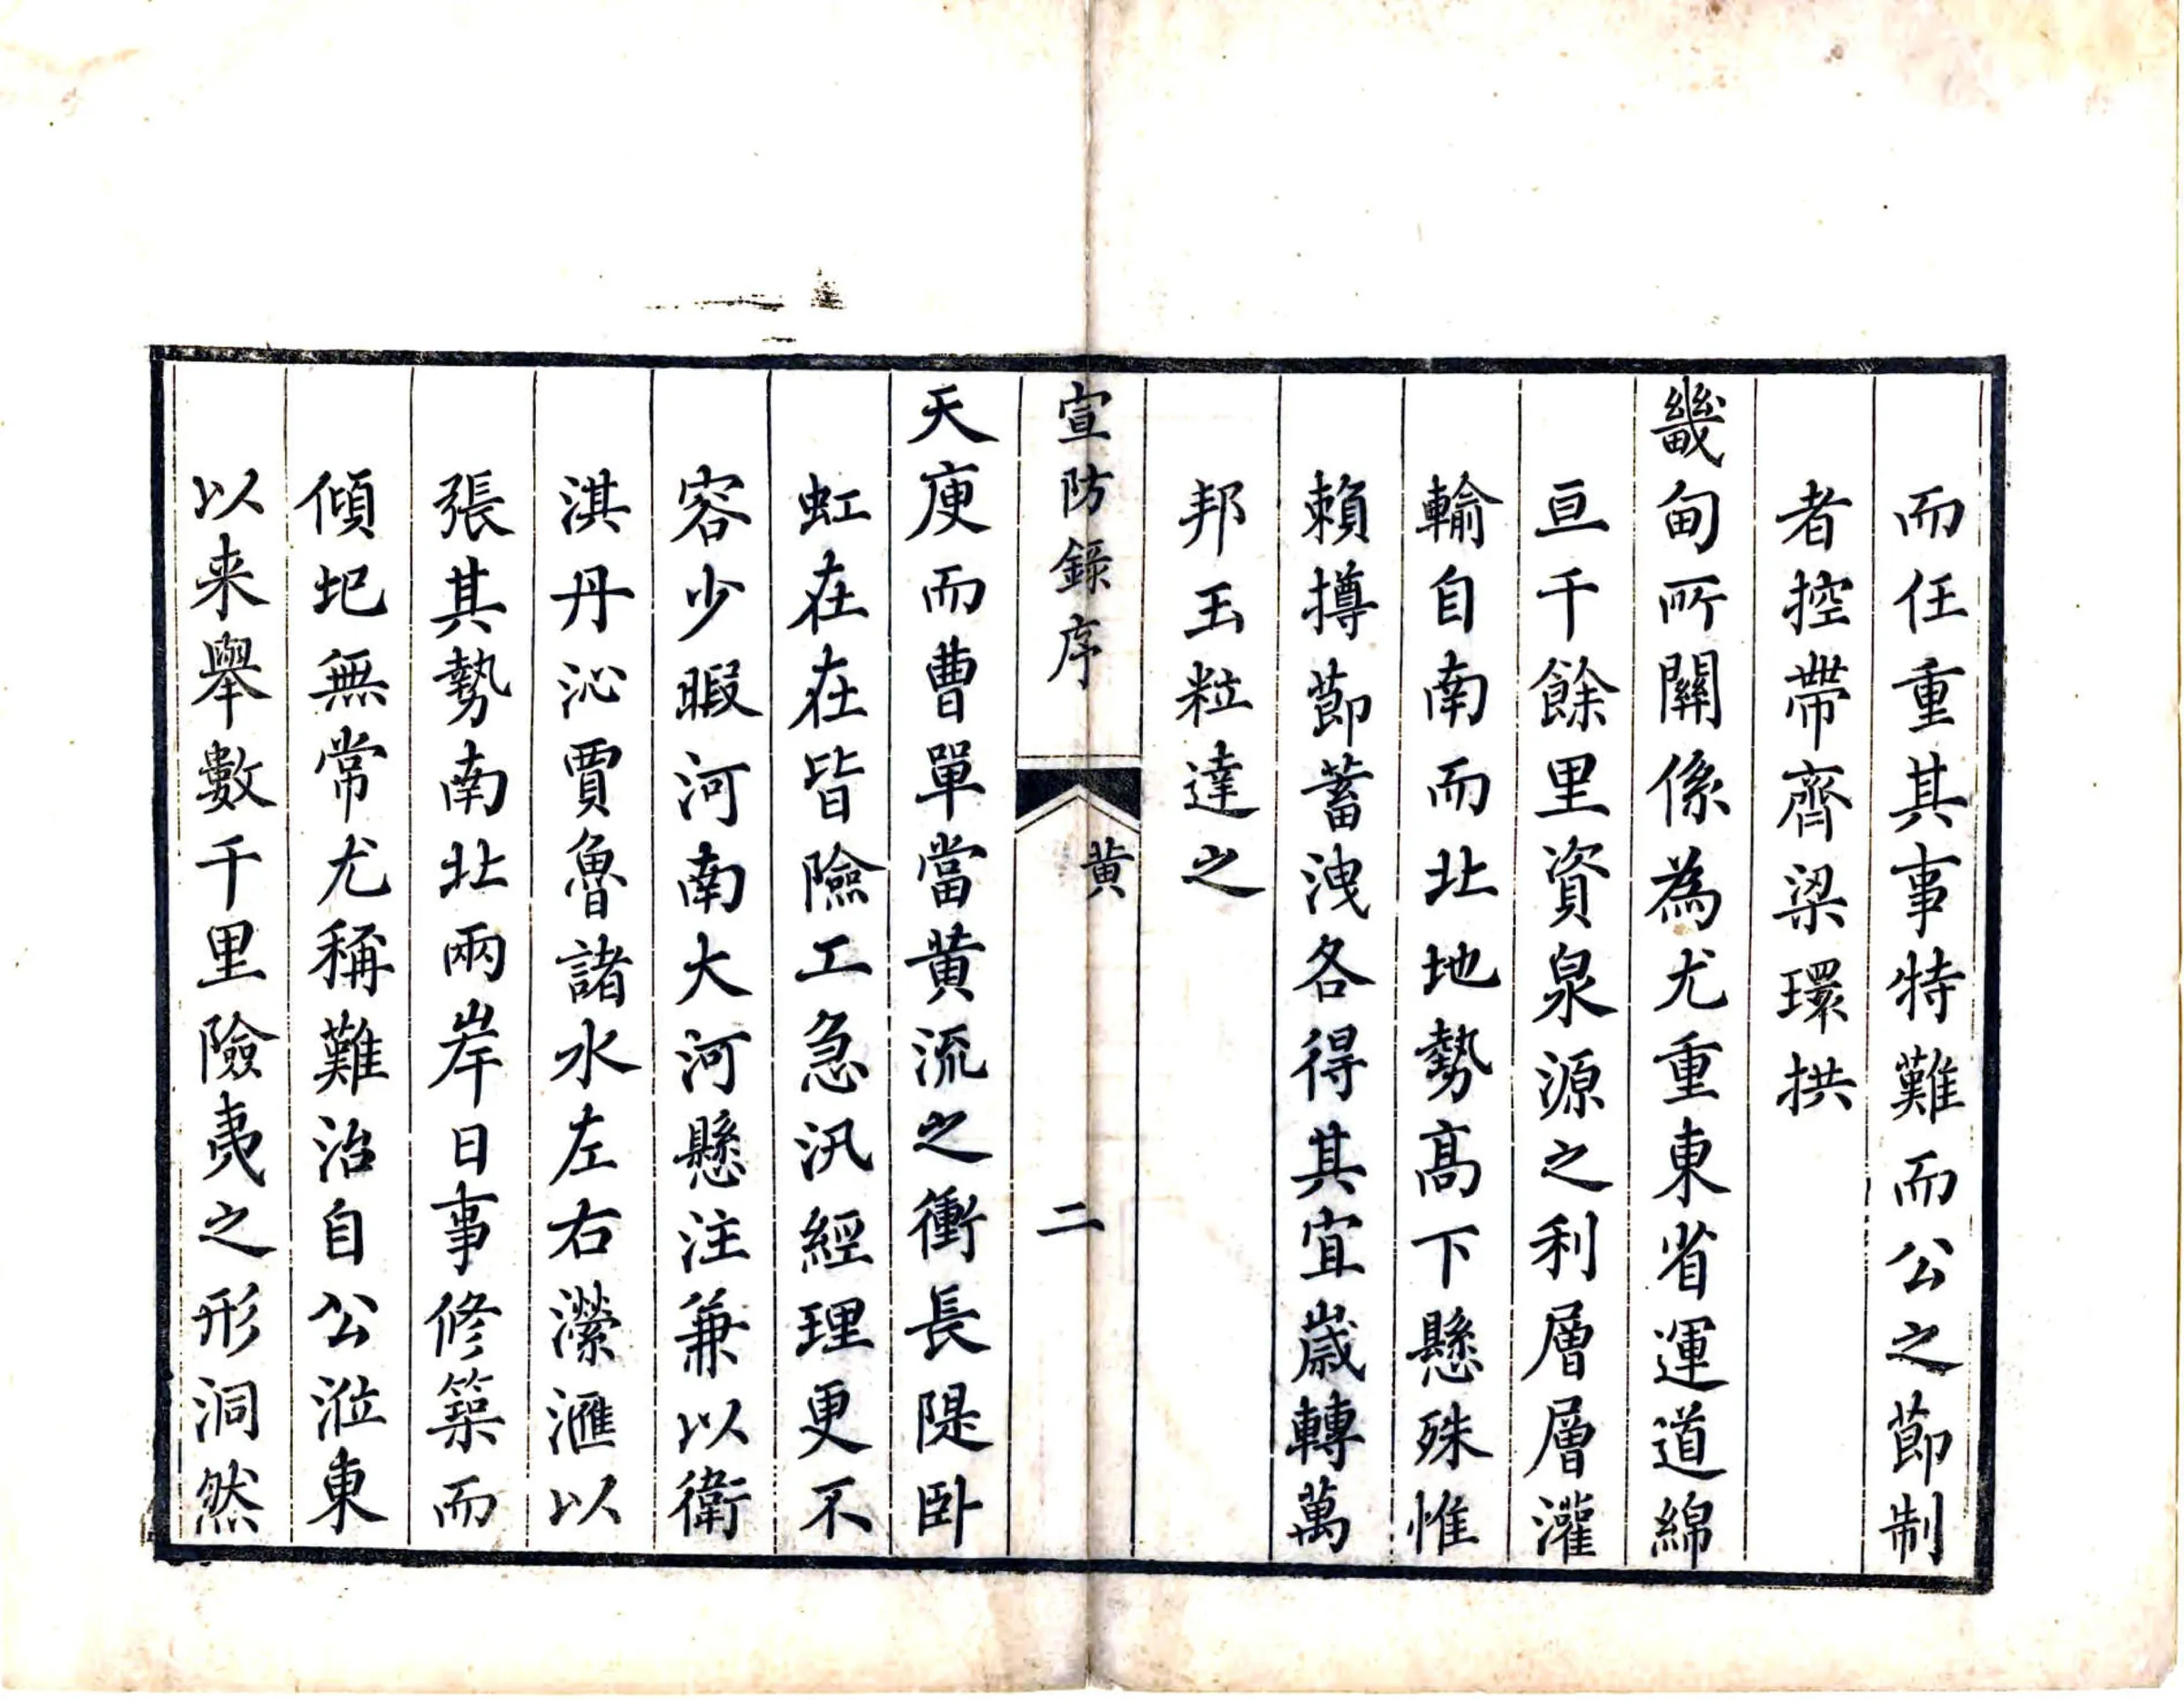 而任重其事特難而公之節制
者控帶齊梁環拱
畿甸所關係為尤重東省運道綿
亘千餘里資泉源之利層層灌
輸自南而北地勢高下懸殊惟
賴撙節蓄洩各得其宜歲轉萬
邦玉粒達之
宣防錄序
黃
二
天庾而曹單當黃流之衝長隄卧
虹在在皆險工急汛經理更不
容少暇河南大河懸注兼以衛
淇丹沁賈魯諸水左右瀠滙以
張其勢南北兩岸日事修築而
傾圯無常尤稱難治自公涖東
以来舉數千里險夷之形洞然